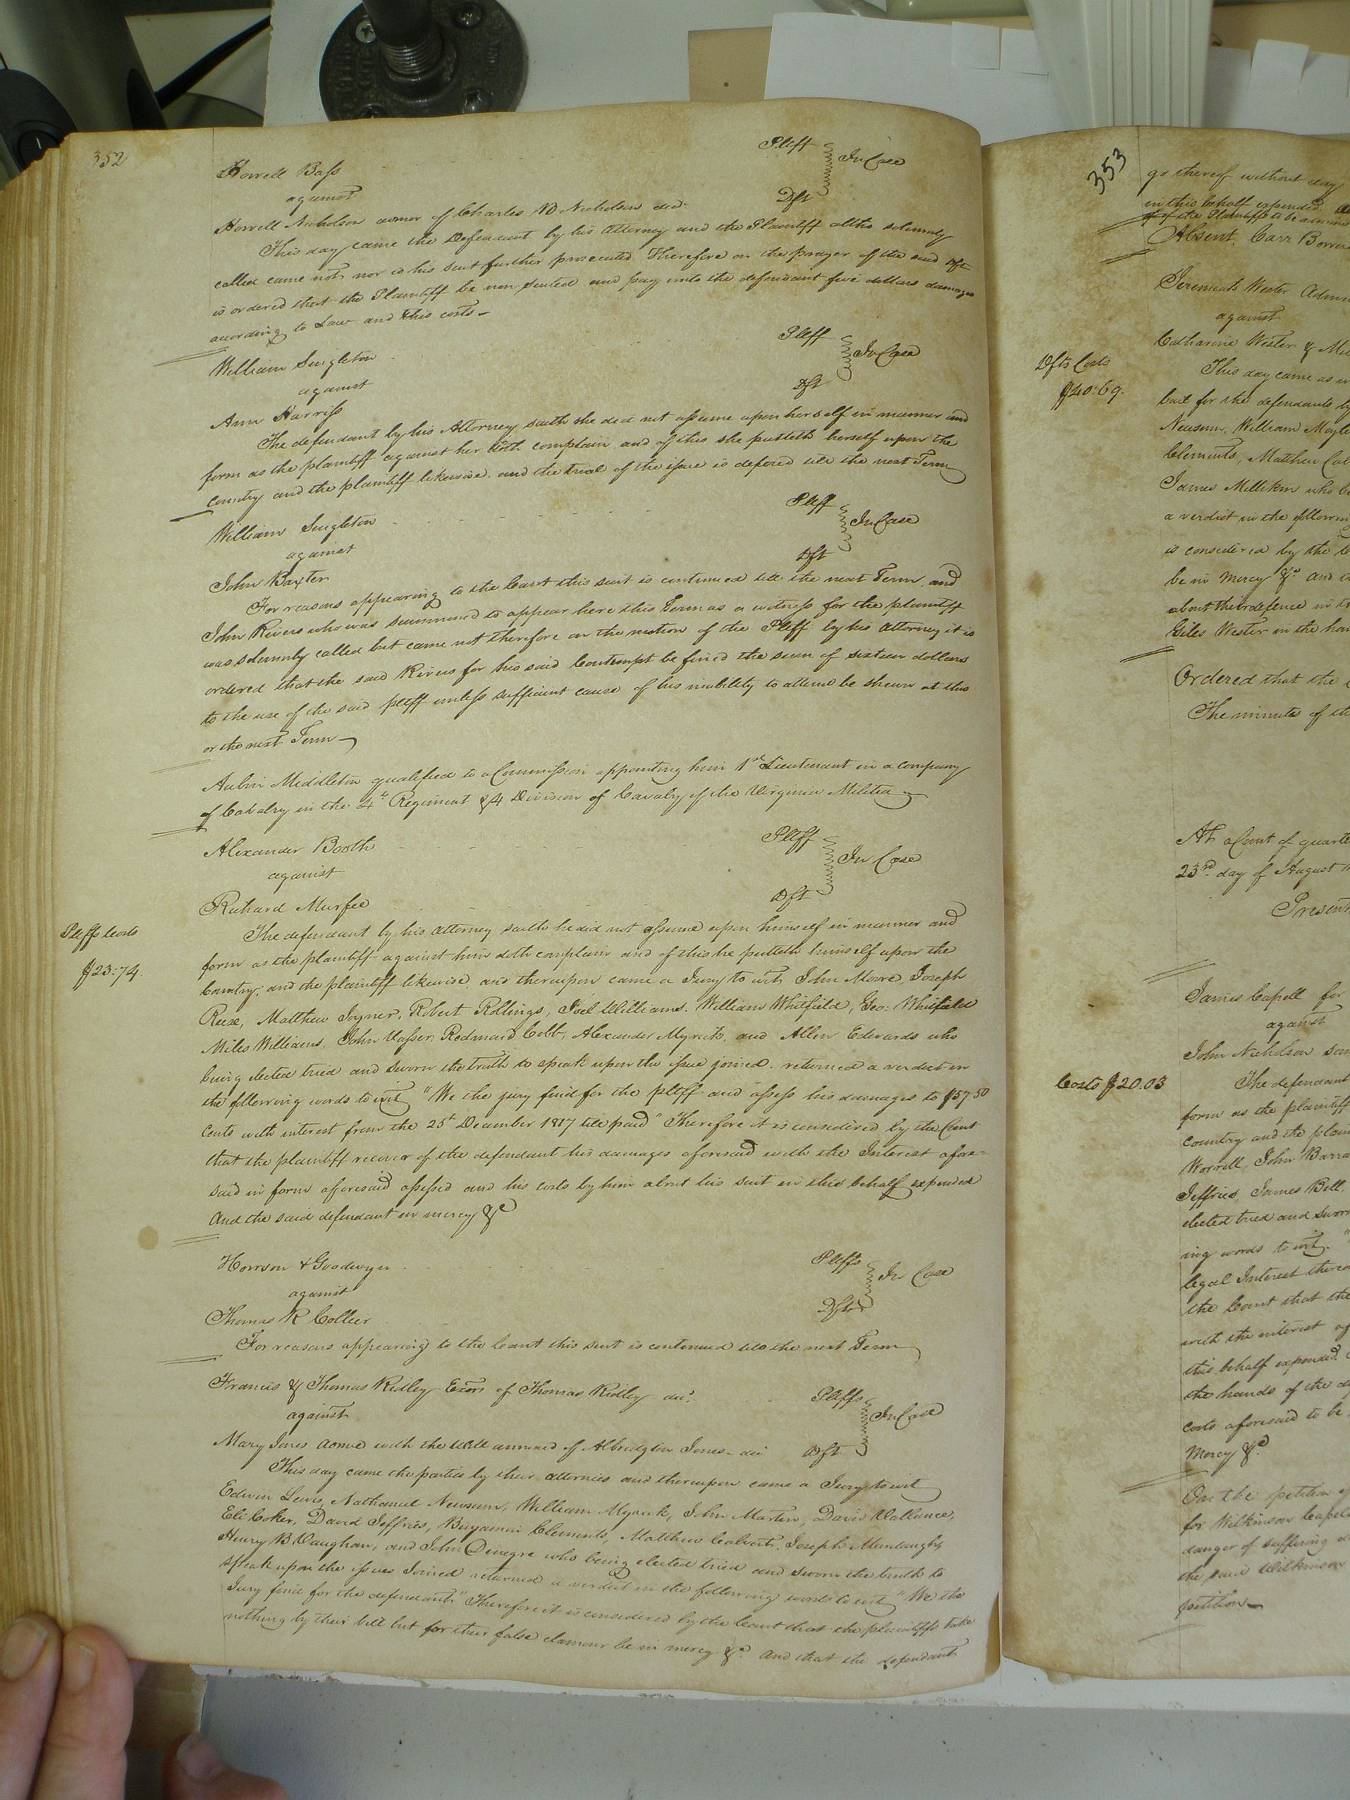 352
Howell Bass Pltff
against In Case
Howell Nicholson admor of Charles B Nicholson decd. Dft
This day came the Defendant by his Attorney and the Plaintiff altho solemnly
called came not, nor is his suit further prosecuted Therefore on the prayer of the said Dft
is ordered that the Plaintiff be non suited and pay unto the defendant five dollars damages
according to Law and his costs —
William Singleton Pltff
against In Case
Ann Harriss Dft
The defendant by his Attorney saith she did not assume upon herself in manner and
form as the plaintiff against her doth complain and of this she putteth herself upon the
Country and the plaintiff likewise. and the trial of the issue is defered till the next Term
William Singleton Pltff
against In Case
John Baxter Dft
For reasons appearing to the Court this suit is continued till the next Term and
John Rivers who was summoned to appear here this Term as a witness for the plaintiff
was solemnly called but came not therefore on the motion of the Pltff by his attorney it is
ordered that the said Rivers for his said Contempt be fined the sum of sixteen dollars
to the use of the said pltff unless sufficient cause of his inability to attend be shewn at this
or the next Term —
Aubin Middleton qualified to a Commission appointing him 1st Lieutenant in a company
of Cavalry in the 4th Regiment & 4 Division of Cavalry of the Virginia Militia
Alexander Booth Pltff
against In Case
Richard Murfee Dft
Pltffs costs
$23:74.
The defendant by his attorney saith he did not assume upon himself in manner and
form as the plaintiff against him doth complain and of this he putteth himself upon the
Country; and the plaintiff likewise, and thereupon came a Jury to wit, John Moore, Joseph
Reese, Matthew Joyner, Robert Rollings, Joel Williams, William Whitfield, Geo: Whitfield
Miles Williams, John Vasser, Redmund Cobb, Alexander Myrick, and Allen Edwards who
being elected tried and sworn the truth to speak upon the issue joined. returned a verdict in
the following words to wit "We the jury find for the pltff and assess his damages to $57.50
Cents with interest from the 25th December 1817 till paid" Therefore it is considered by the Court
that the plaintiff recover of the defendant his damages aforesaid with the Interest afore-
said in form aforesaid assessed and his costs by him about his suit in this behalf expended
And the said defendant in mercy &c
Horrson & Goodwyn Pltffs
against In Case
Thomas R Collier Dft
For reasons appearing to the Court this suit is continued till the next Term
Francis & Thomas Ridley Exors of Thomas Ridley decd. Pltffs
against In Case
Mary Jones admx with the will annexed of Albridgton Jones decd Dft
This day came the parties by their attornies and thereupon came a Jury to wit
Edwin Lewis, Nathaniel Newsum, William Myrick, John Martin, David Vallance,
Eli Coker, David Jeffries, Benjamin Clements, Matthew Calvert, Joseph
Henry B. Vaughan, and John Denegre who being elected tried and sworn the truth to
speak upon the issues Joined returned a verdict in the following words to wit "We the
Jury find for the defendant" Therefore it is considered by the Court that the plaintiffs take
nothing by their bill but for their false clamour be in mercy &c And that the defendant
353
go thereof without day
in this behalf expended
of the Plaintiffs to be
Absent, Carr Bowers
Jeremiah Wester Admr
against
Catharine Wester &
Dfts Costs
$40:69.
This day came as
but for the defendants by
Newsum, William
Clements, Matthew
James Millikin who
a verdict in the following
is considered by the
be in Mercy &c And
about their defence in
Giles Wester in the
Ordered that the
The minutes of
At a Court of
23rd. day of August
Present
James Capell for
against
John Nicholson
Costs $20.03
The defendant
form as the plaintiff
Country and the
Worrell, John
Jeffries, James Bell,
elected tried and sworn
ing words to wit. "
legal Interest
the Court that the
with the interest
this behalf expended
the hands of the
costs aforesaid to be
Mercy &c
On the petition of
for Wilkinson
danger of suffering
the said Wilkinson
petition —